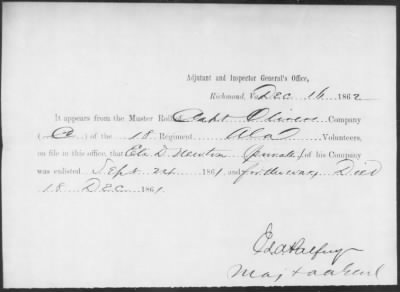 Adjutant and Inspector General's Office,
Richmond, Va. Dec 16 1862
It appears from the Muster Roll of Capt Olivers Company
(A) of the 18 Regiment Ala Volunteers,
on file in this office, that Eli D. (private) of his Company
was enlisted Sept 24 1861 and for the war. Died
18 Dec 1861
Maj & A A Genl